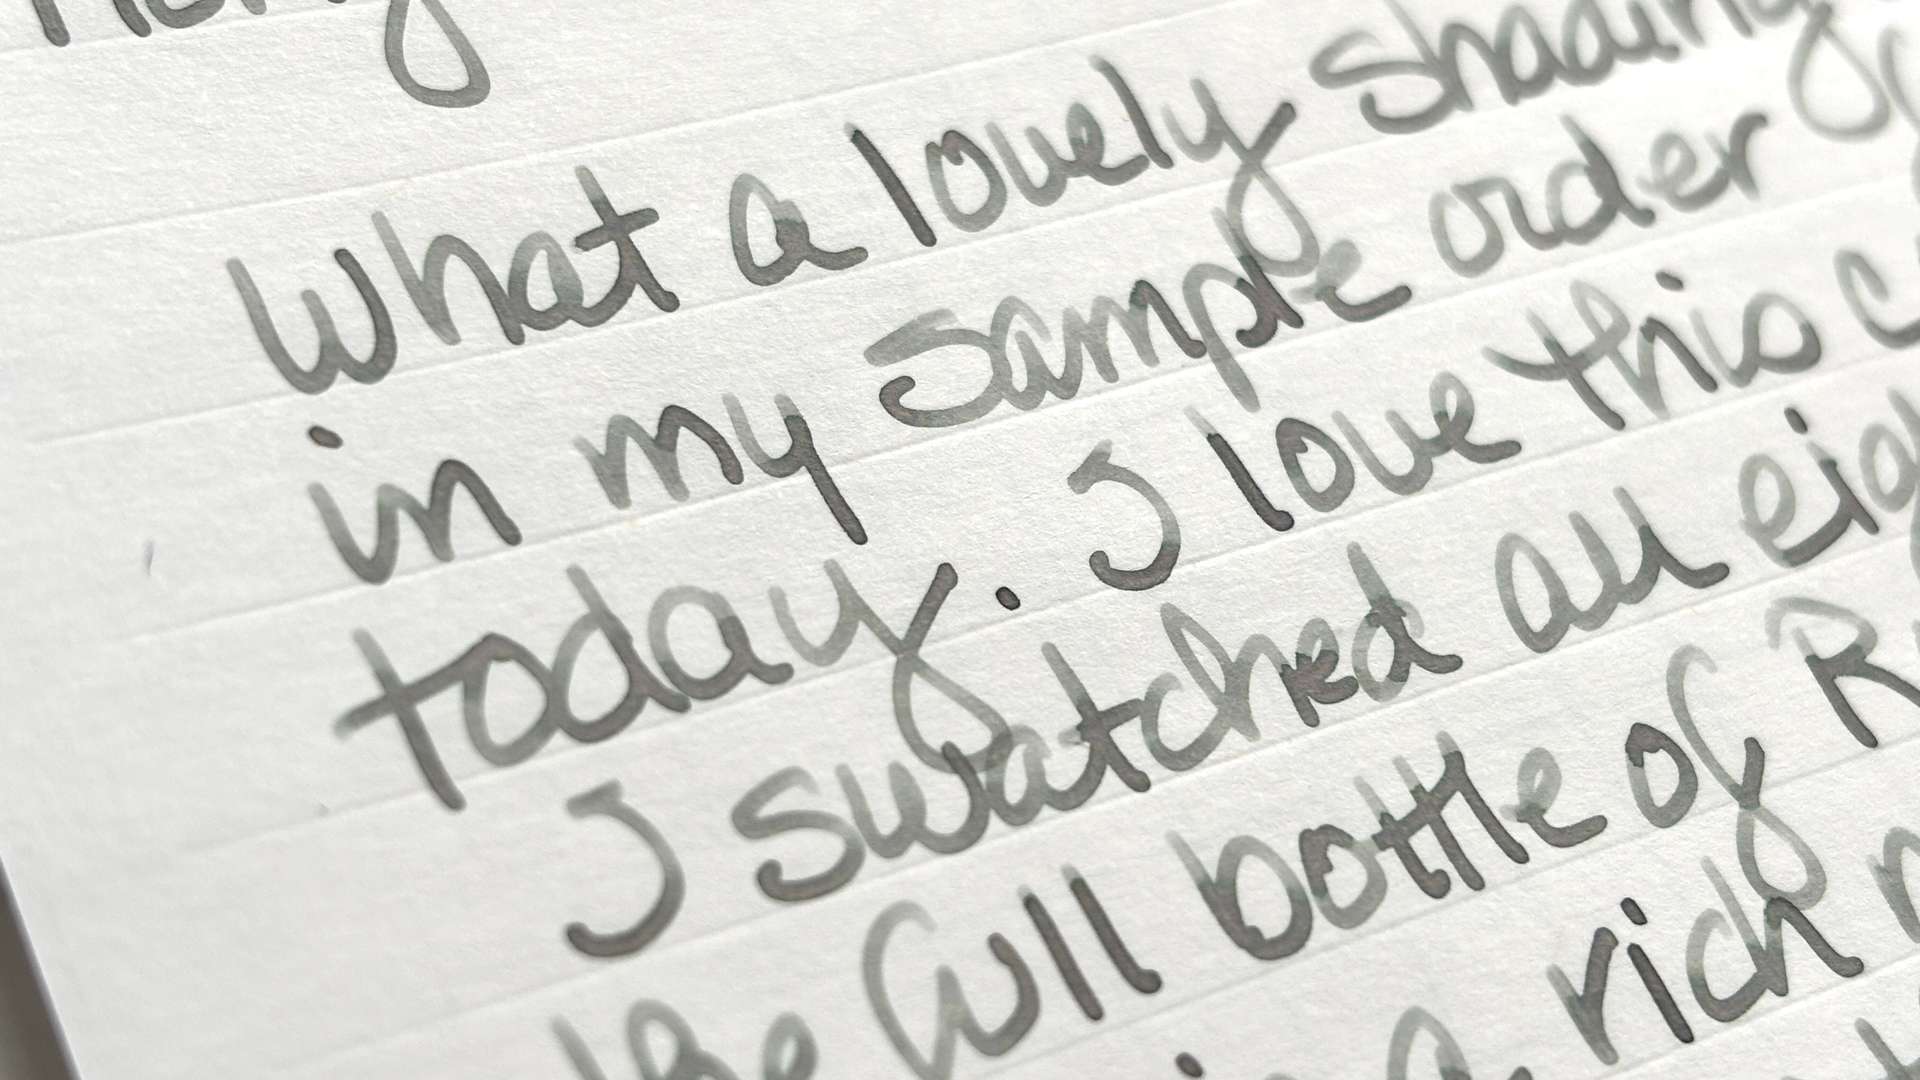 What a lovely shading
in my sample order
today. I love this
I swatched all
the full bottle of
rich